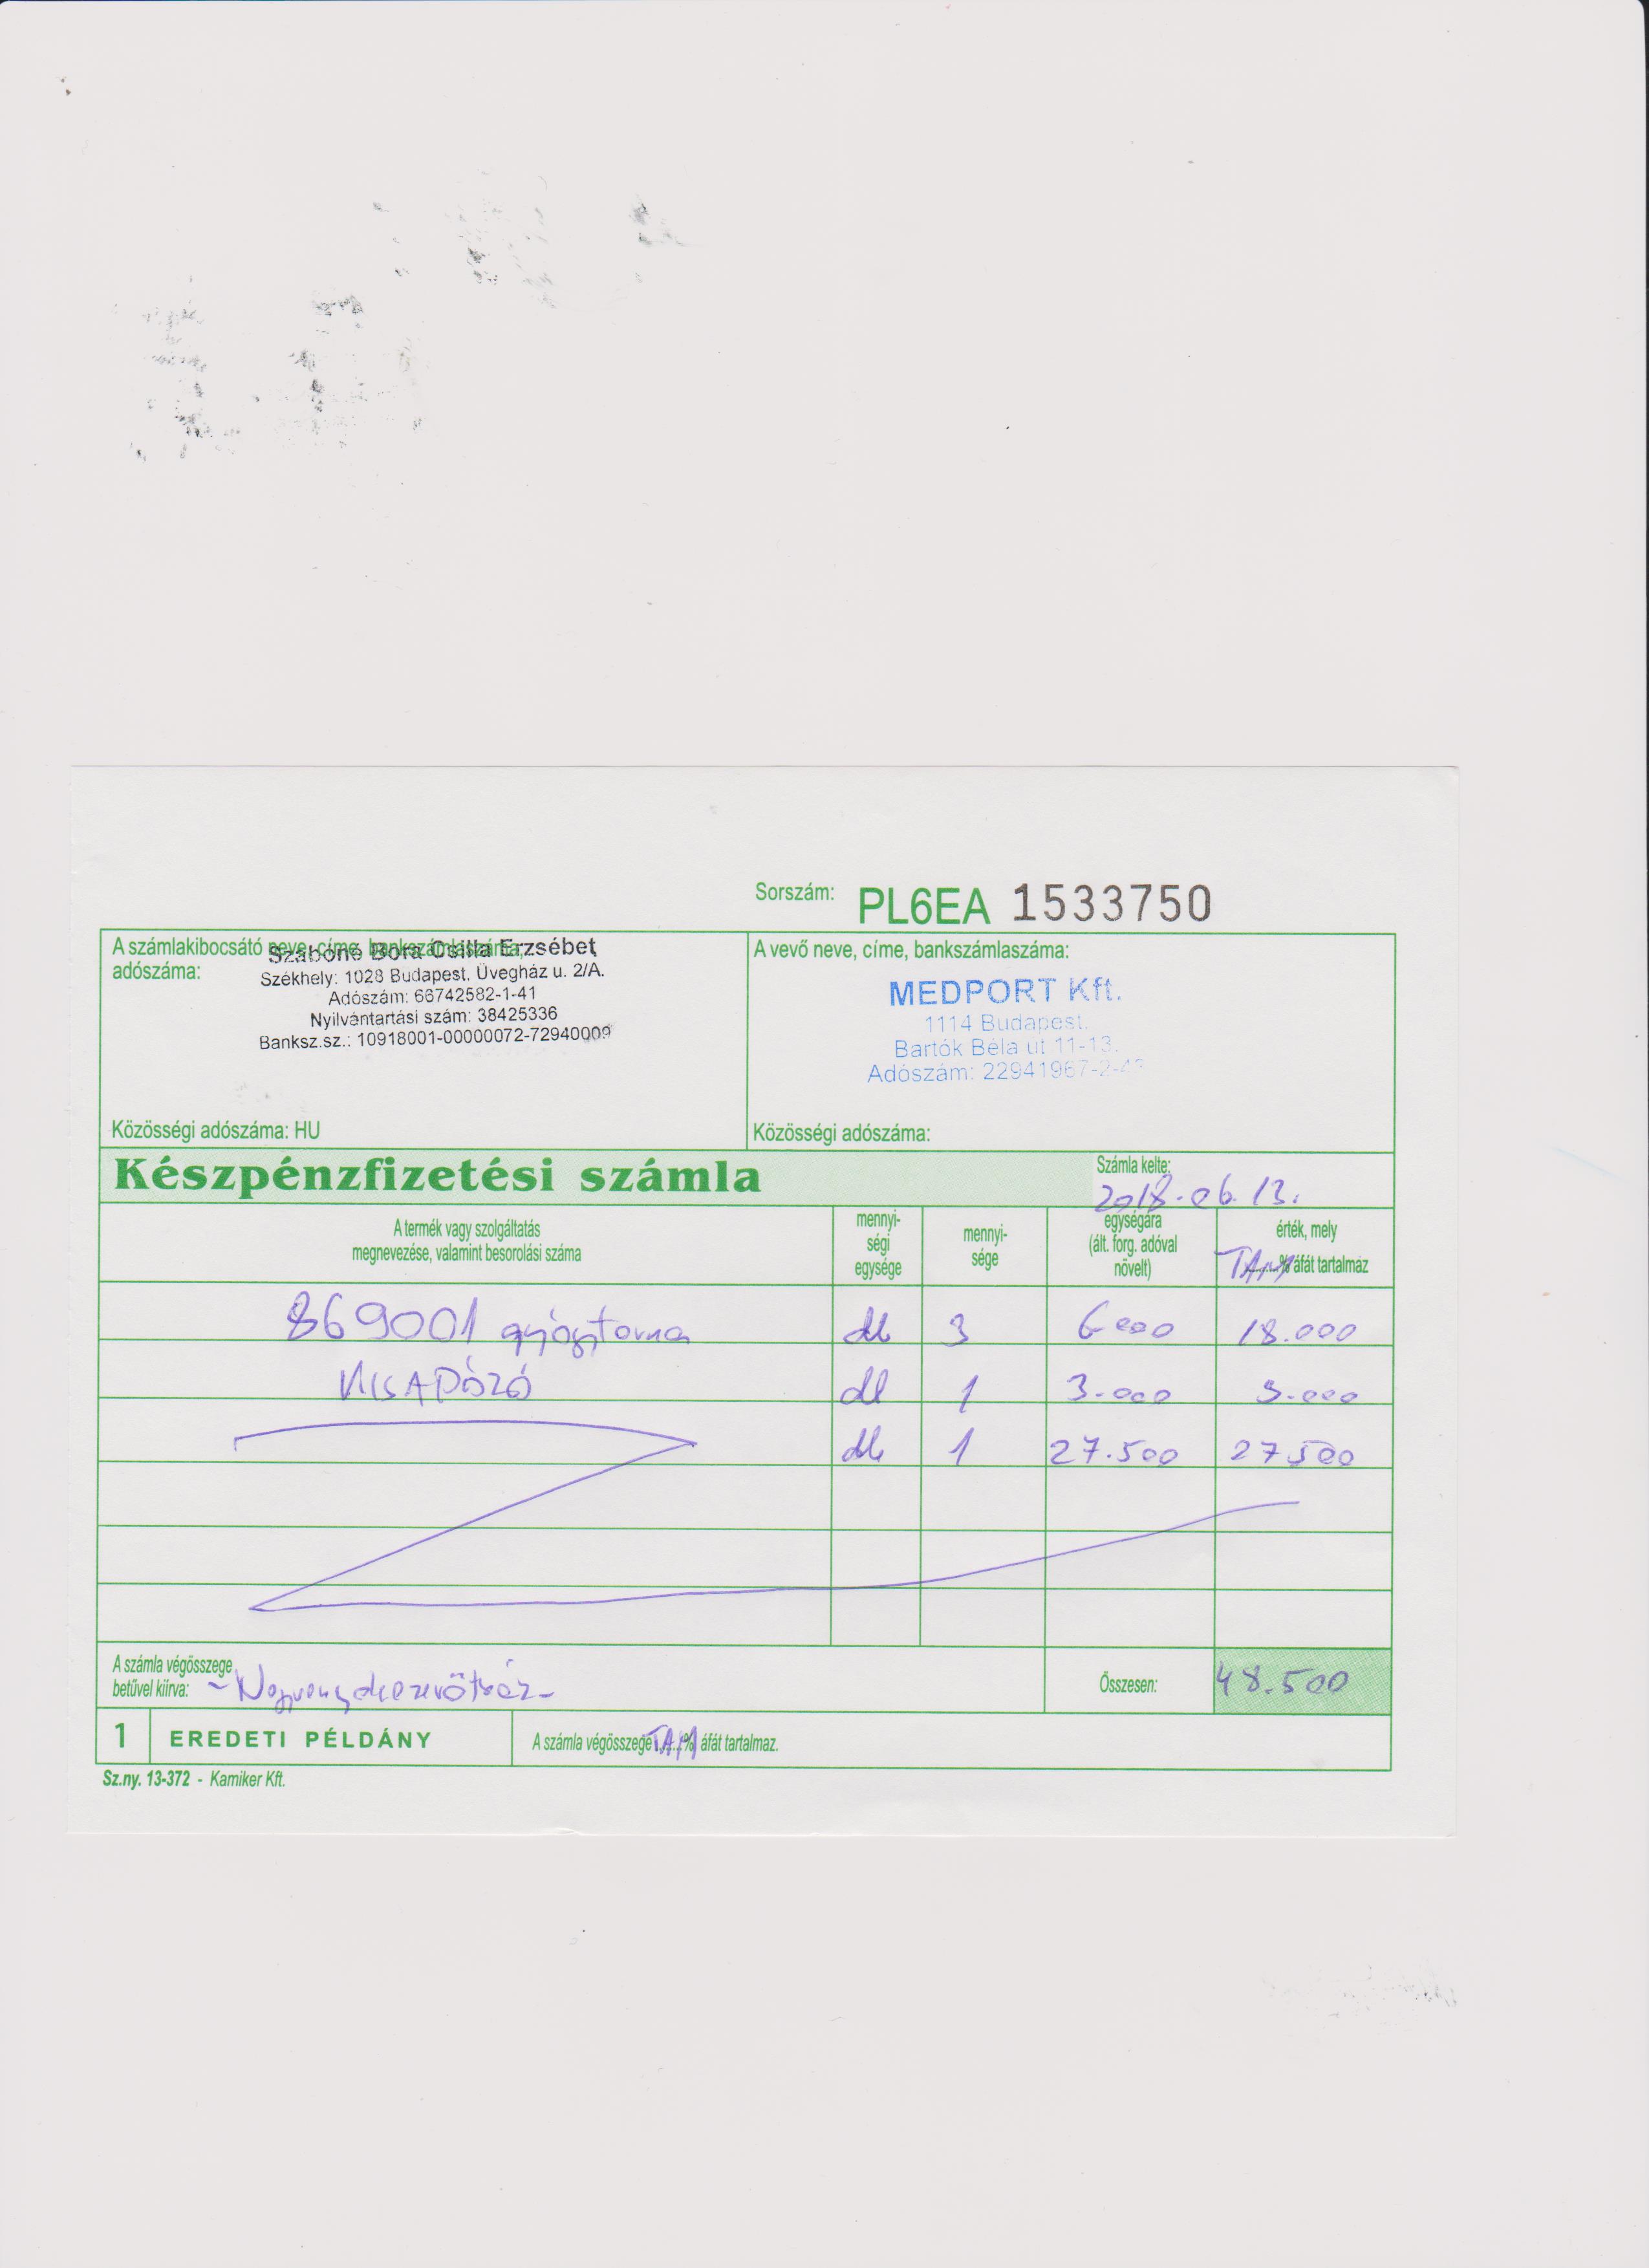 Sorszám: PL6EA 1533750
A számlakibocsátó neve, címe, bankszámlaszáma,
adószáma:
Szabóné Bora Csilla Erzsébet
Székhely: 1028 Budapest, Üvegház u. 2/A.
Adószám: 66742582-1-41
Nyilvántartási szám: 38425336
Banksz.sz.: 10918001-00000072-72940009
Közösségi adószáma: HU
A vevő neve, címe, bankszámlaszáma:
MEDPORT Kft.
1114 Budapest,
Bartók Béla út 11-13.
Adószám: 22941967-2-43
Közösségi adószáma:
Készpénzfizetési számla
Számla kelte:
2018.06.13.
A termék vagy szolgáltatás
megnevezése, valamint besorolási száma
mennyi-
ségi
egysége
mennyi-
sége
egységára
(ált. forg. adóval
növelt)
érték, mely
TAM % áfát tartalmaz
869001 gyógytorna db 3 6000 18.000
KISADÓZÓ db 1 3.000 3.000
db 1 27.500 27500
A számla végösszege
betűvel kiírva:
Összesen: 48.500
1 EREDETI PÉLDÁNY A számla végösszege TAM % áfát tartalmaz.
Sz.ny. 13-372 - Kamiker Kft.